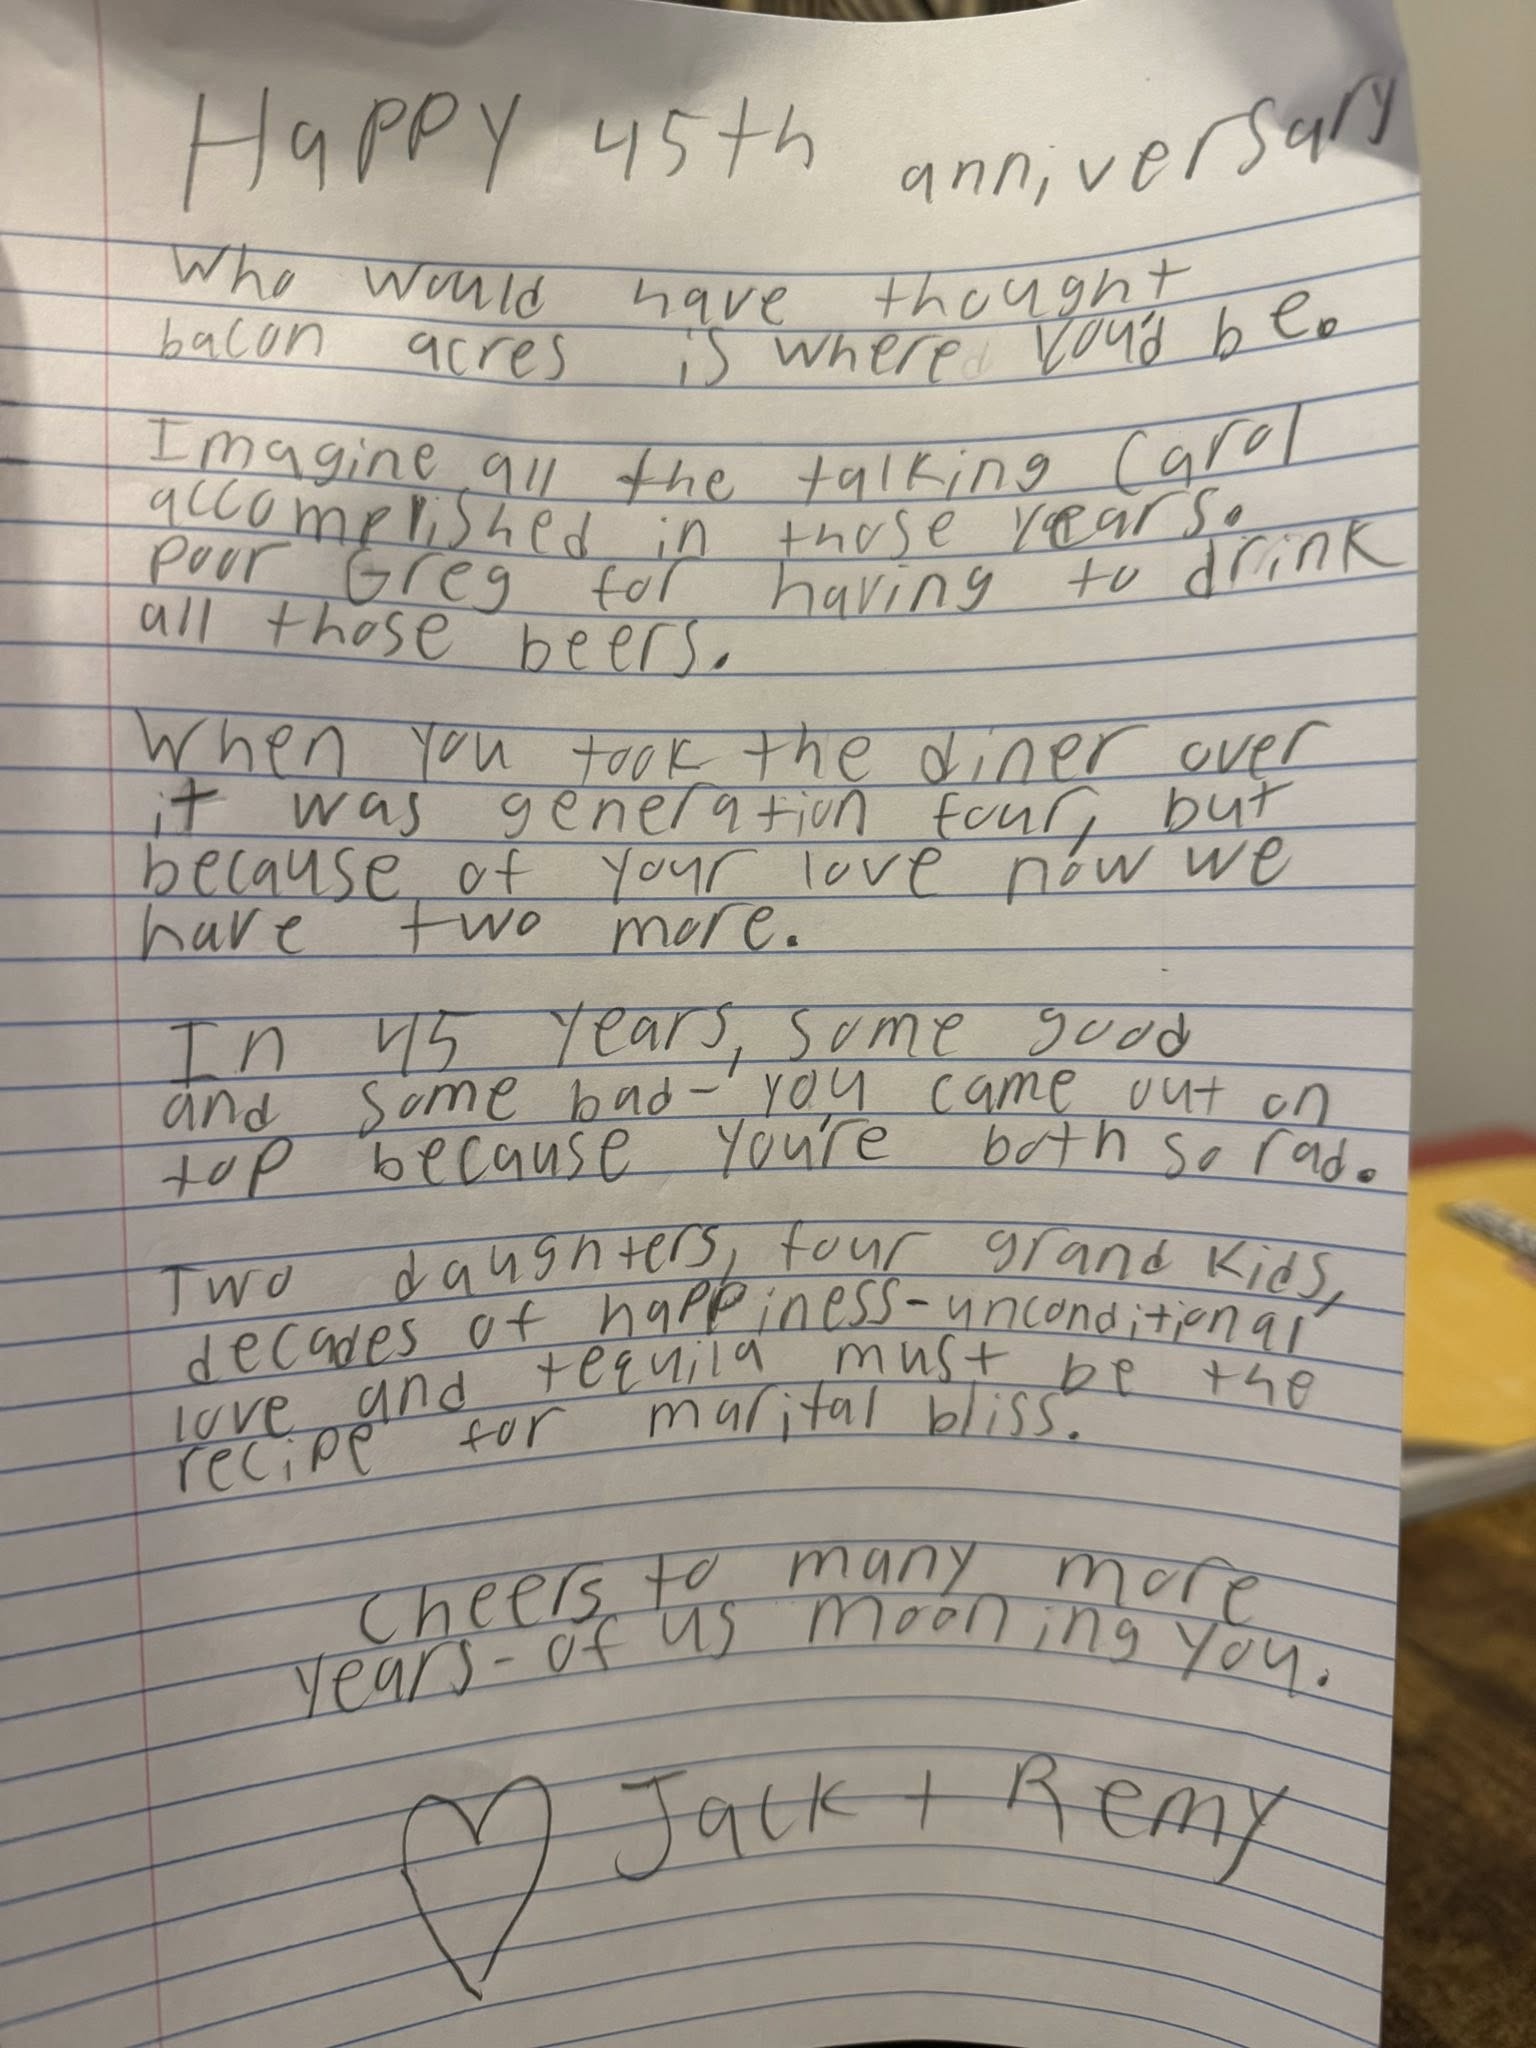 Happy 45th anniversary
Who would have thought
bacon acres is where you'd be.
Imagine all the talking Carol
accomplished in those years.
poor Greg for having to drink
all those beers.
When you took the diner over
it was generation four, but
because of your love now we
have two more.
In 45 years, some good
and some bad- you came out on
top because you're both so rad.
Two daughters, four grand kids,
decades of happiness-unconditional
love and tequila must be the
recipe for marital bliss.
Cheers to many more
years- of us mooning you.
Jack + Remy